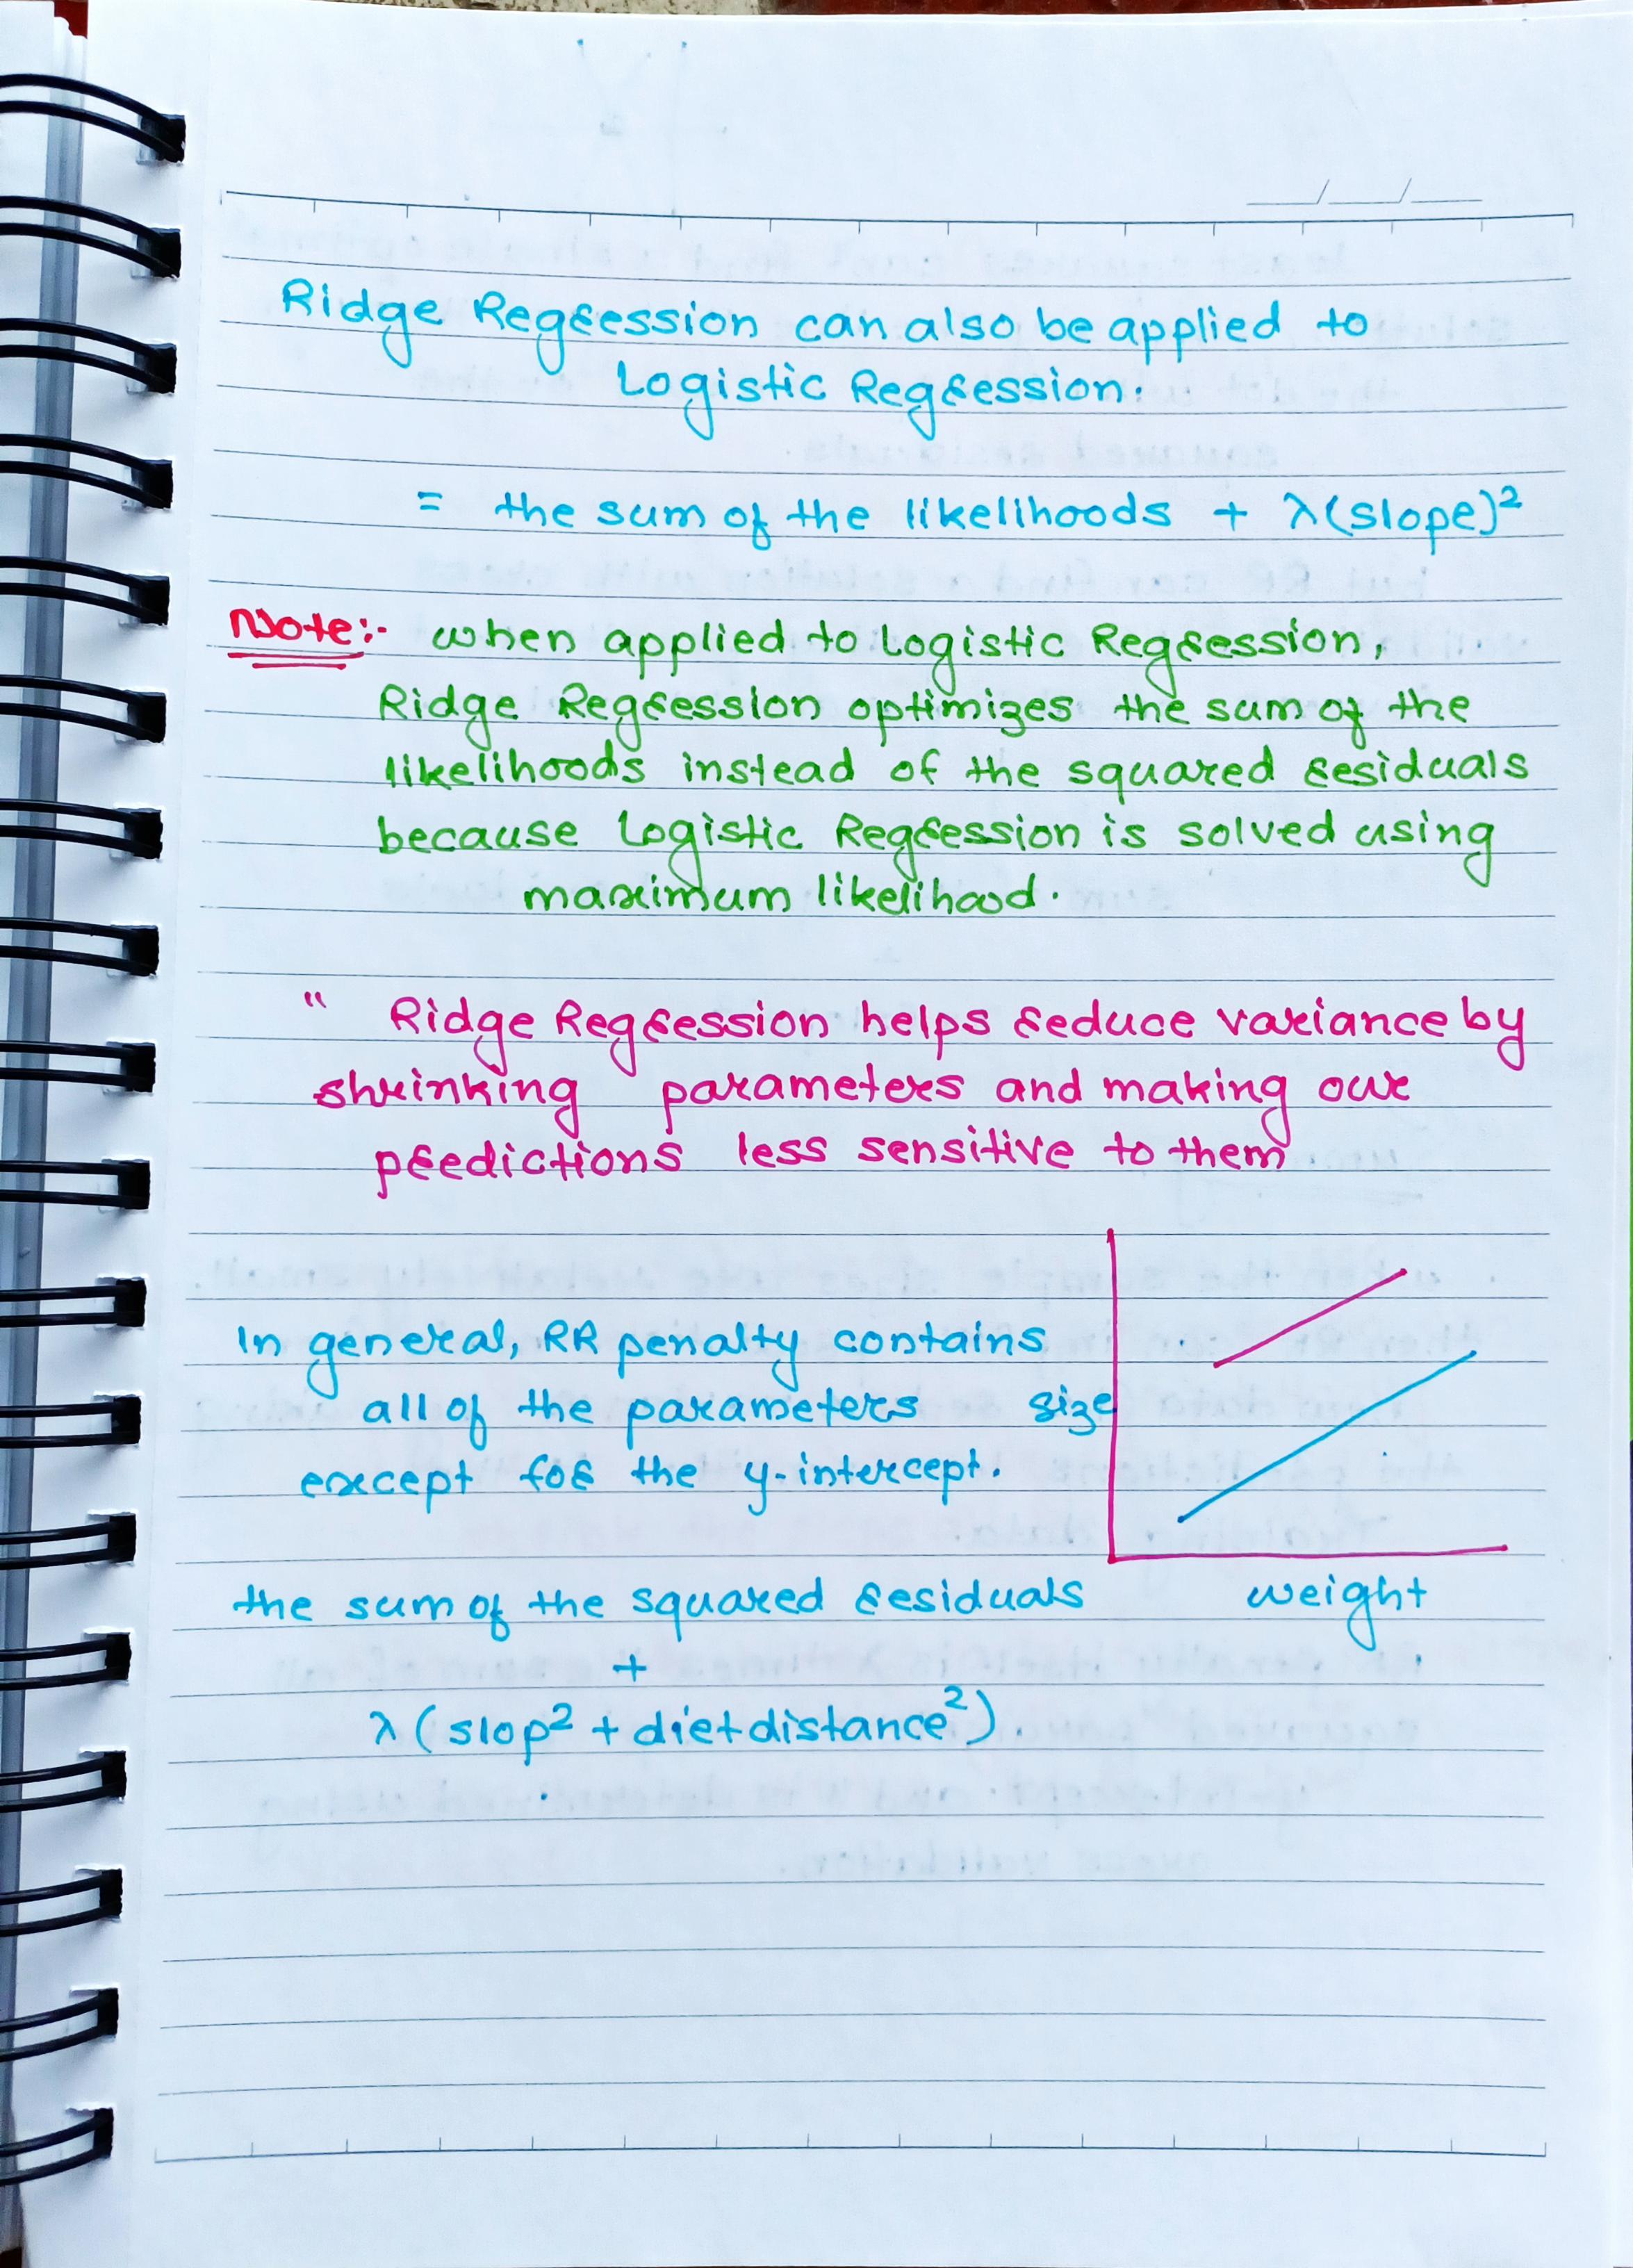 Ridge Regression can also be applied to
Logistic Regression.
= the sum of the likelihoods + λ(slope)²
Note:- when applied to Logistic Regression,
Ridge Regression optimizes the sum of the
likelihoods instead of the squared residuals
because Logistic Regression is solved using
maximum likelihood.
" Ridge Regression helps reduce variance by
shrinking parameters and making our
predictions less sensitive to them
In general, RR penalty contains
all of the parameters
except for the y-intercept.
size
weight
the sum of the squared residuals
+
λ(slop² + diet distance²).